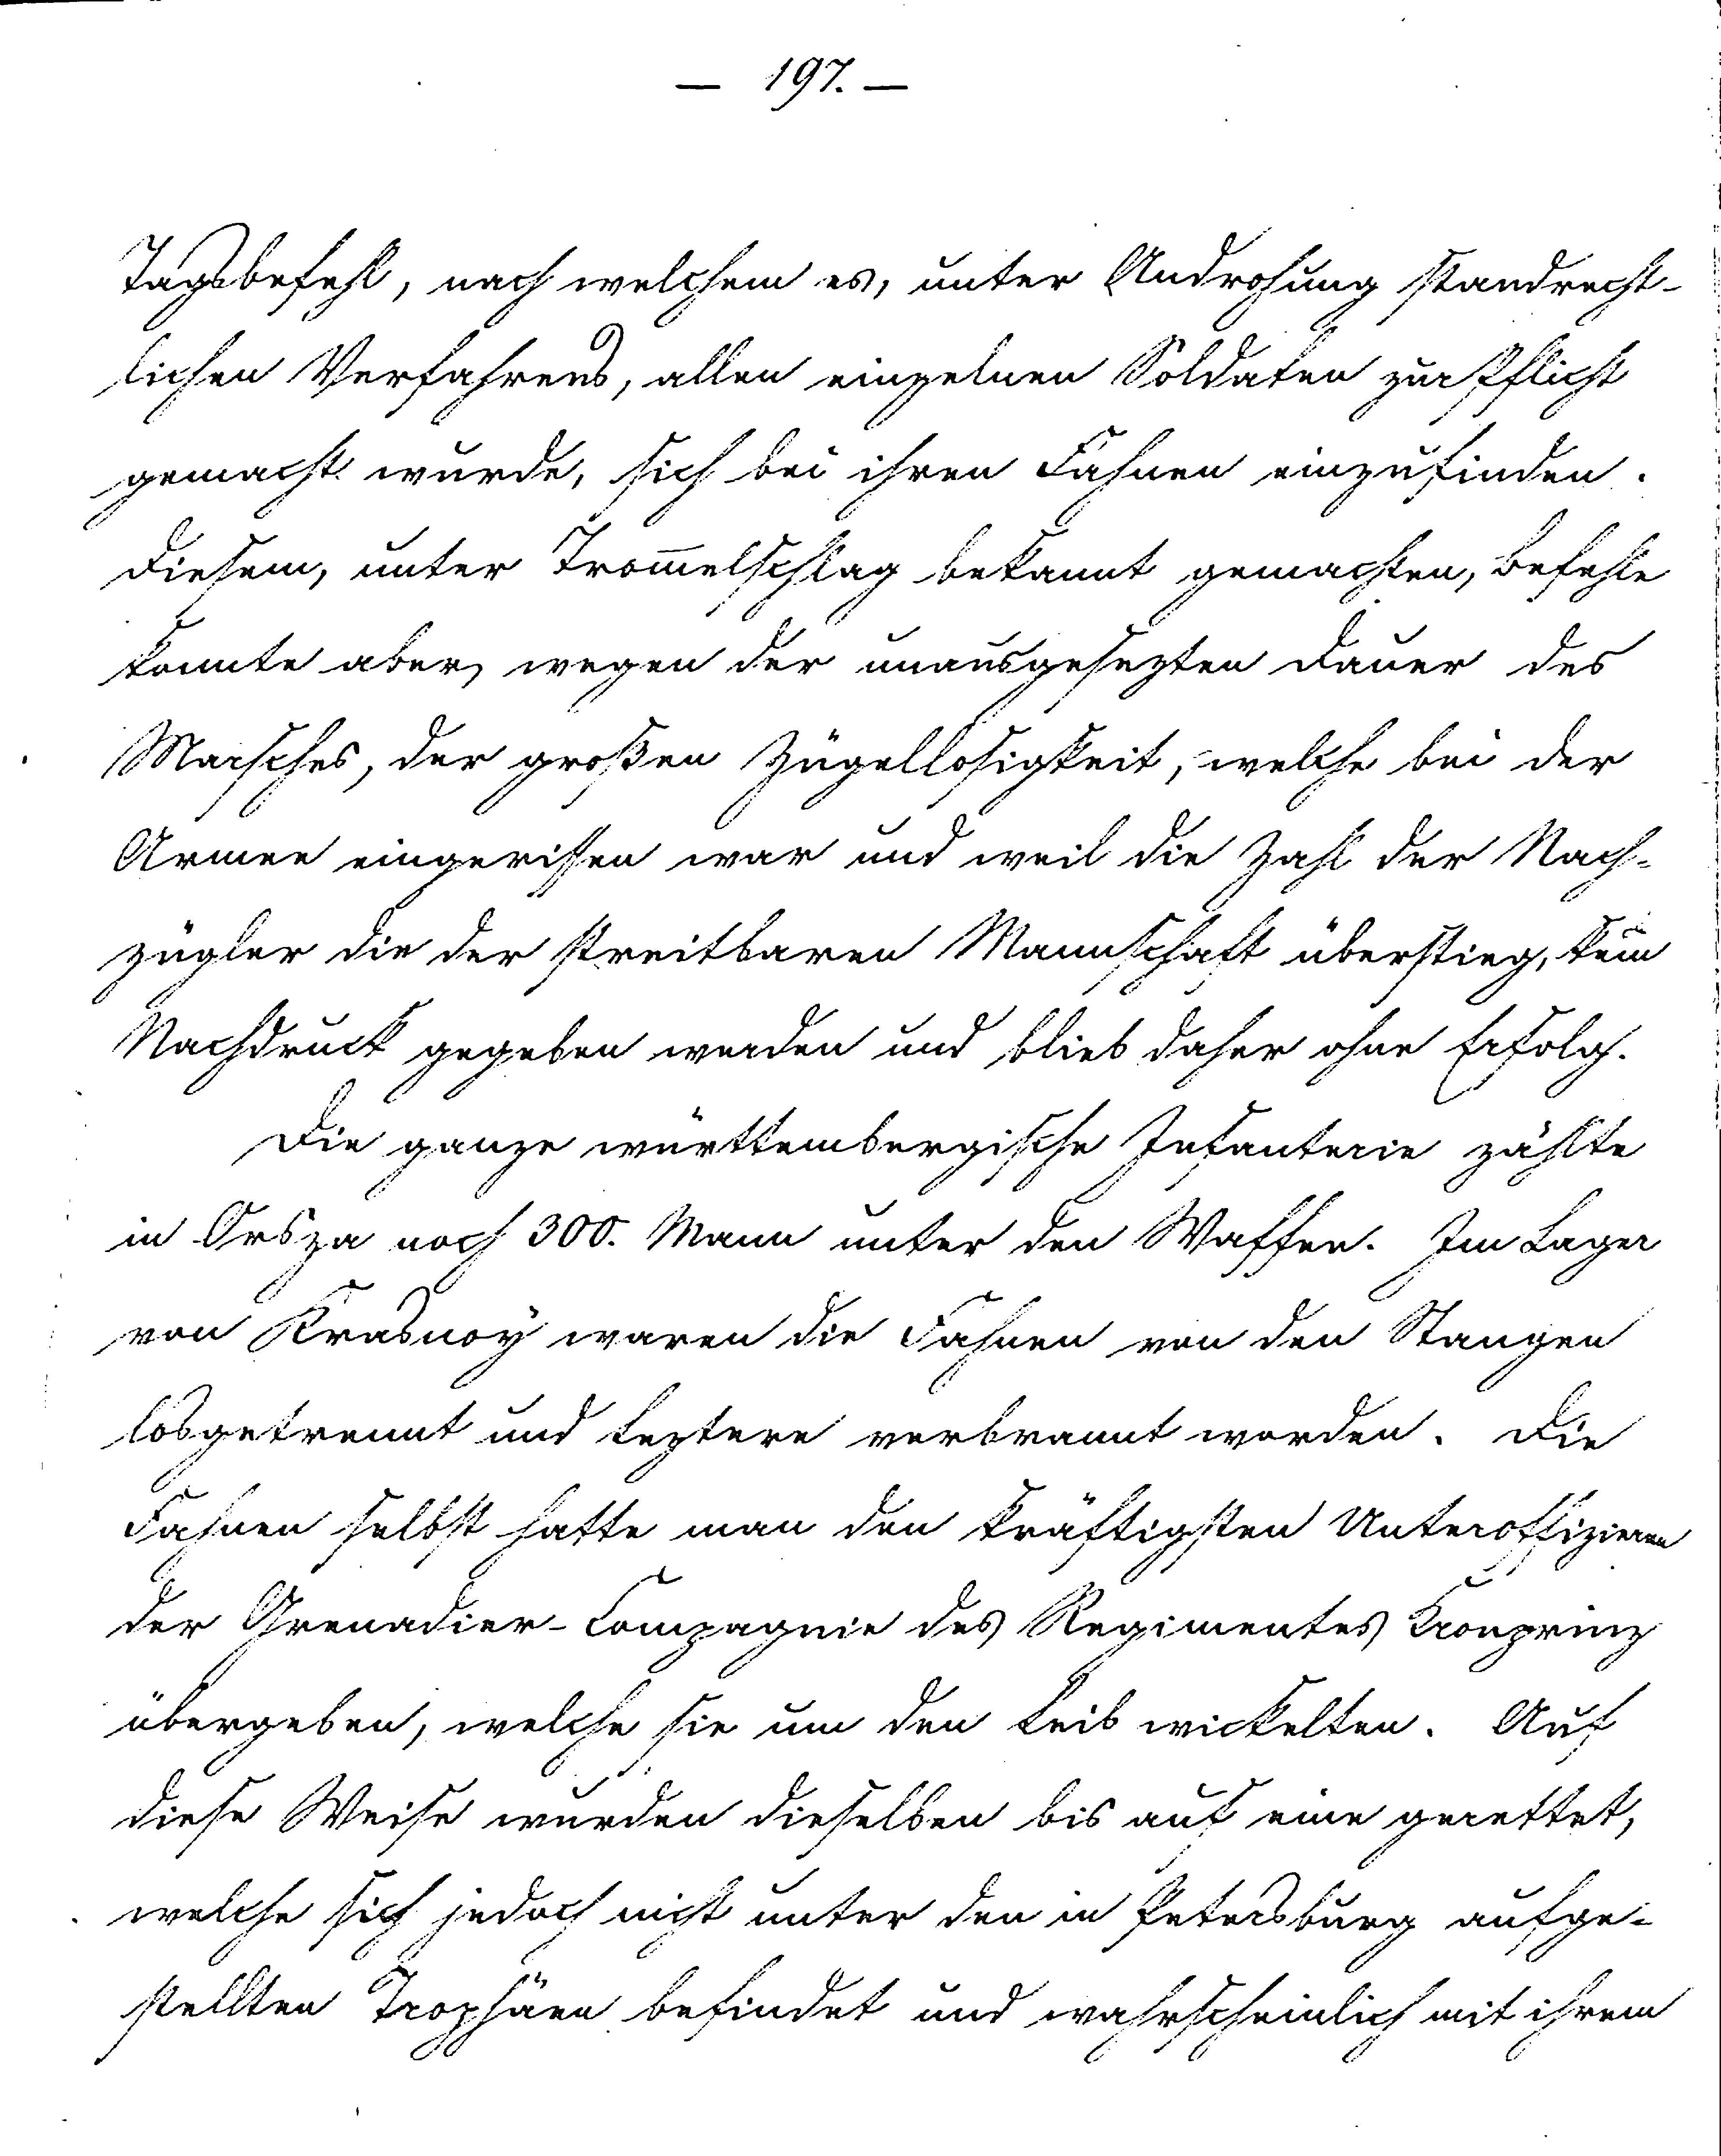 — 197. —
Tagsbefehl, nach welchem es, unter Androhung standrecht-
lichen Verfahrens, allen einzelnen Soldaten zur Pflicht
gemacht wurde, sich bei ihren Fahnen einzufinden.
Diesem, unter Trom̅elschlag bekannt gemachten, Befehle
konnte aber, wegen der unausgesezten Dauer des
Marsches, der großen Zügellosigkeit, welche bei der
Armee eingerissen war und weil die Zahl der Nach-
zügler die der streitbaren Mannschaft überstieg, kein
Nachdruck gegeben werden und blieb daher ohne Erfolg.
Die ganze württembergische Infanterie zählte
in Orsza noch 300. Mann unter den Waffen. Im Lager
von Krasnoÿ waren die Fahnen von den Stangen
losgetrennt und leztere verbrannt worden. Die
Fahnen selbst hatte man den kräftigsten Unteroffizieren
der Grenadier-Compagnie des Regimentes Kronprinz
übergeben, welche sie um den Leib wickelten. Auf
diese Weise wurden dieselben bis auf eine gerettet,
welche sich jedoch nicht unter den in Petersburg aufge-
stellten Trophäen befindet und wahrscheinlich mit ihrem